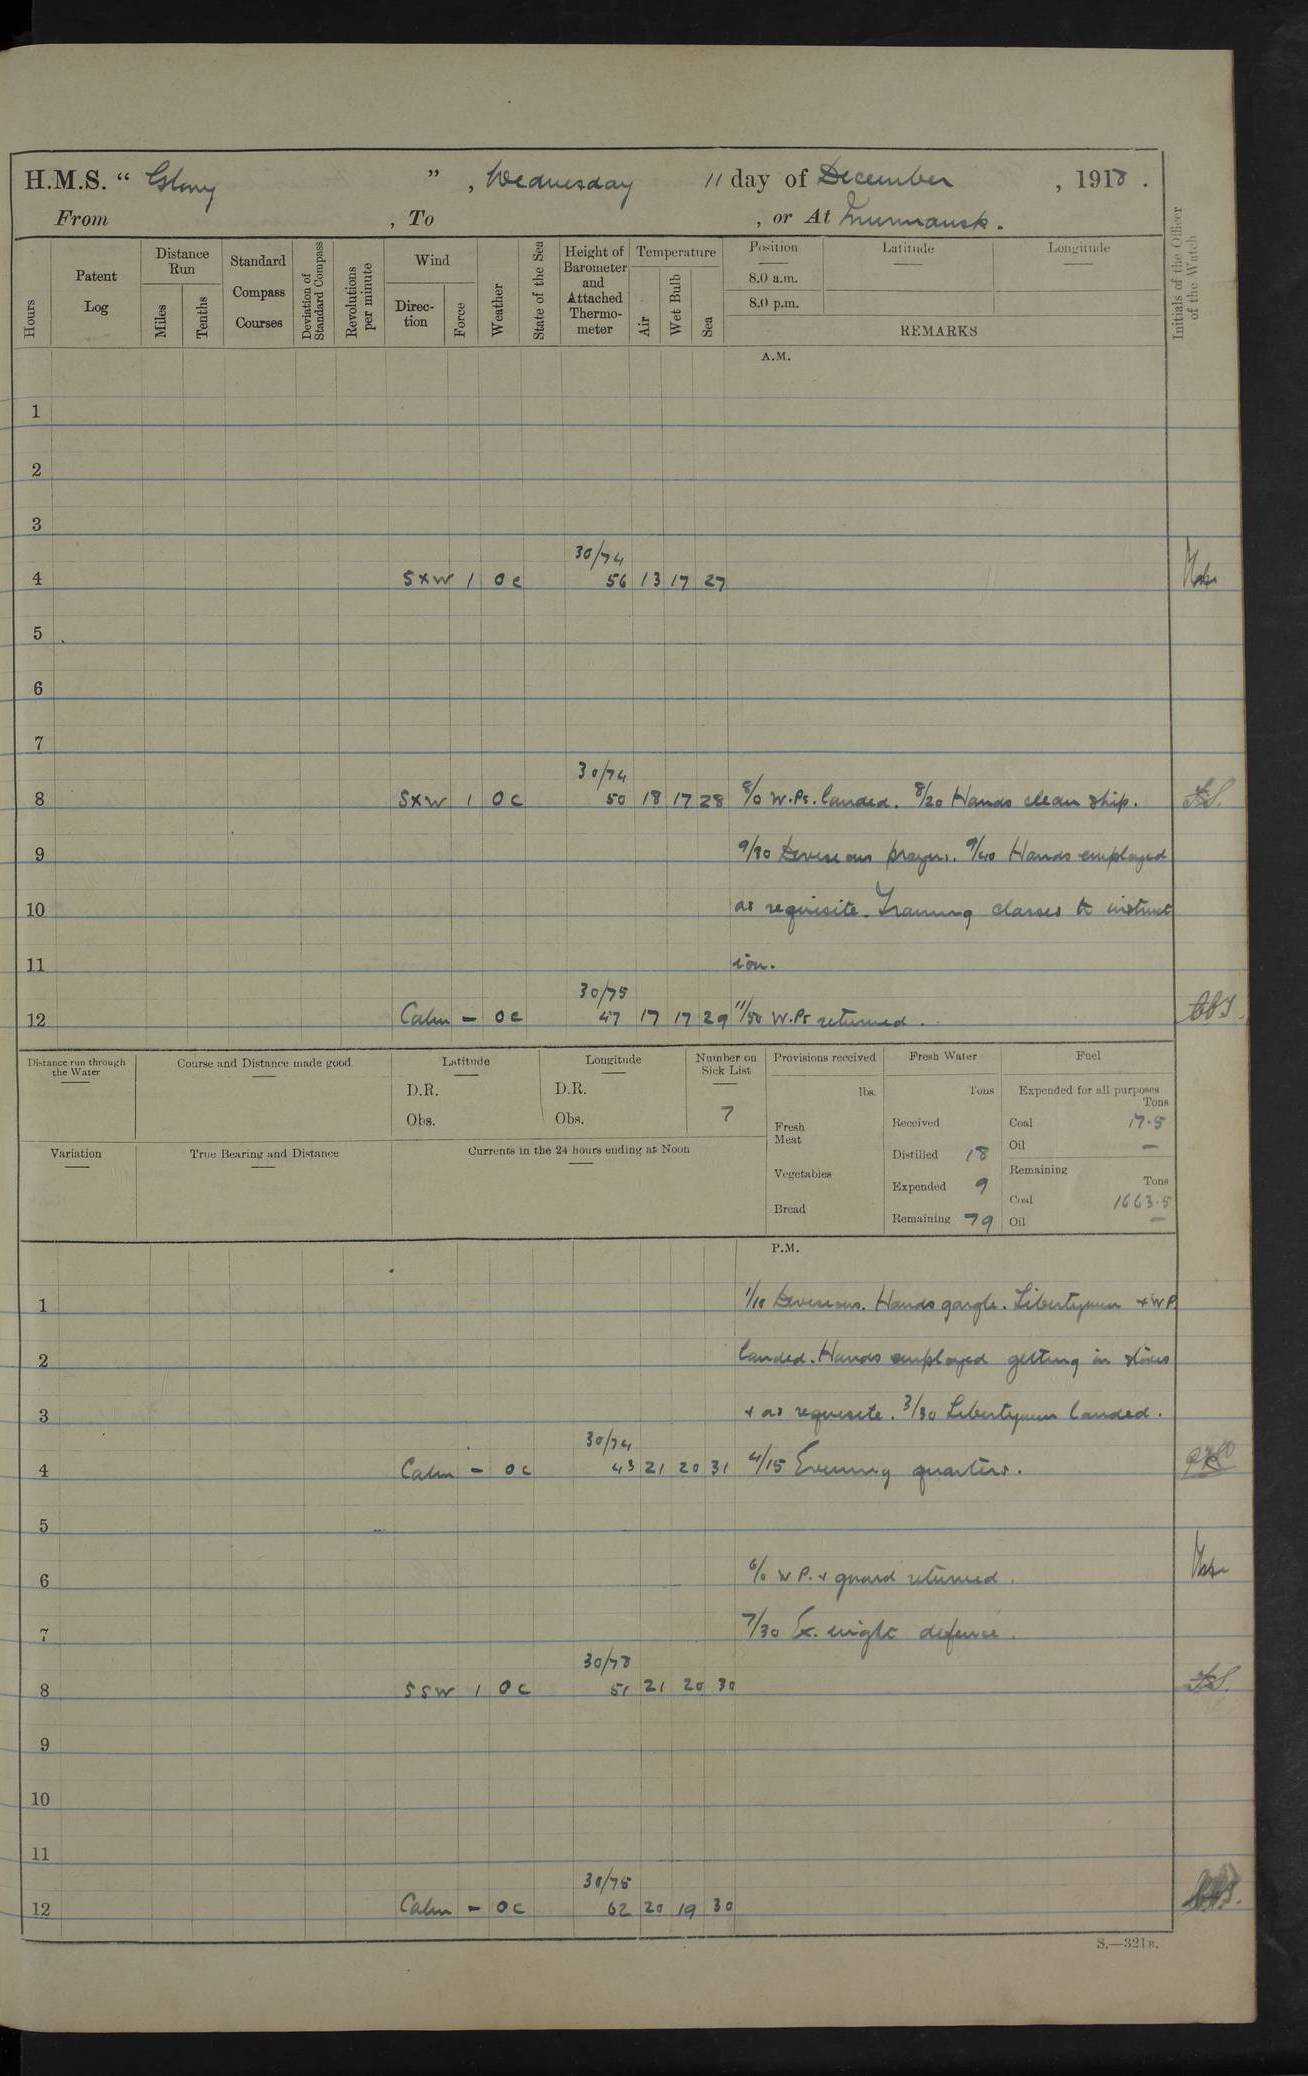 H.M.S. “ Glory ” , Wednesday 11 day of December , 1918 .
From , To , or At Murmansk.
Hours
Patent Log
Distance Run
Miles
Tenths
Standard Compass Courses
Deviation of Standard Compass
Revolutions per minute
Wind
Direc-tion
Force
Weather
State of the Sea
Height of Barometer and Attached Thermo-meter
Temperature
Air
Wet Bulb
Sea
Position
8.0 a.m.
8.0 p.m.
Latitude
Longitude
REMARKS
Initials of the Officer of the Watch
A.M.
1
2
3
30/74
4 SxW 1 oc 56 13 17 27
5
6
7
30/74
8 SxW 1 oc 50 18 17 28 8/0 W.Ps. landed. 8/20 Hands clean ship.
9 9/30 Divisions prayers. 9/40 Hands employed
10 as requisite. Training classes to instruct
11 ion.
30/75
12 Calm - oc 47 17 17 29 11/50 W.Ps returned.
Distance run through the Water
Course and Distance made good
Latitude
D.R.
Obs.
Longitude
D.R.
Obs.
Number on Sick List
7
Provisions received
lbs.
Fresh Meat
Vegetables
Bread
Fresh Water
Tons
Received
Distilled 18
Expended 9
Remaining 79
Fuel
Expended for all purposes
Tons
Coal 17.5
Oil —
Remaining
Tons
Coal 1663.5
Oil —
Variation
True Bearing and Distance
Currents in the 24 hours ending at Noon
P.M.
1 1/10 Divisions. Hands gargle. Libertymen + W P
2 landed. Hands employed getting in stores
3 + as requisite. 3/30 Libertymen landed.
30/74
4 Calm - oc 43 21 20 31 4/15 Evening quarters.
5
6 6/0 W P. + guard returned.
7 7/30 Ex. night defence.
30/78
8 SSW 1 oc 51 21 20 30
9
10
11
30/75
12 Calm - oc 62 20 19 30
S.—321B.